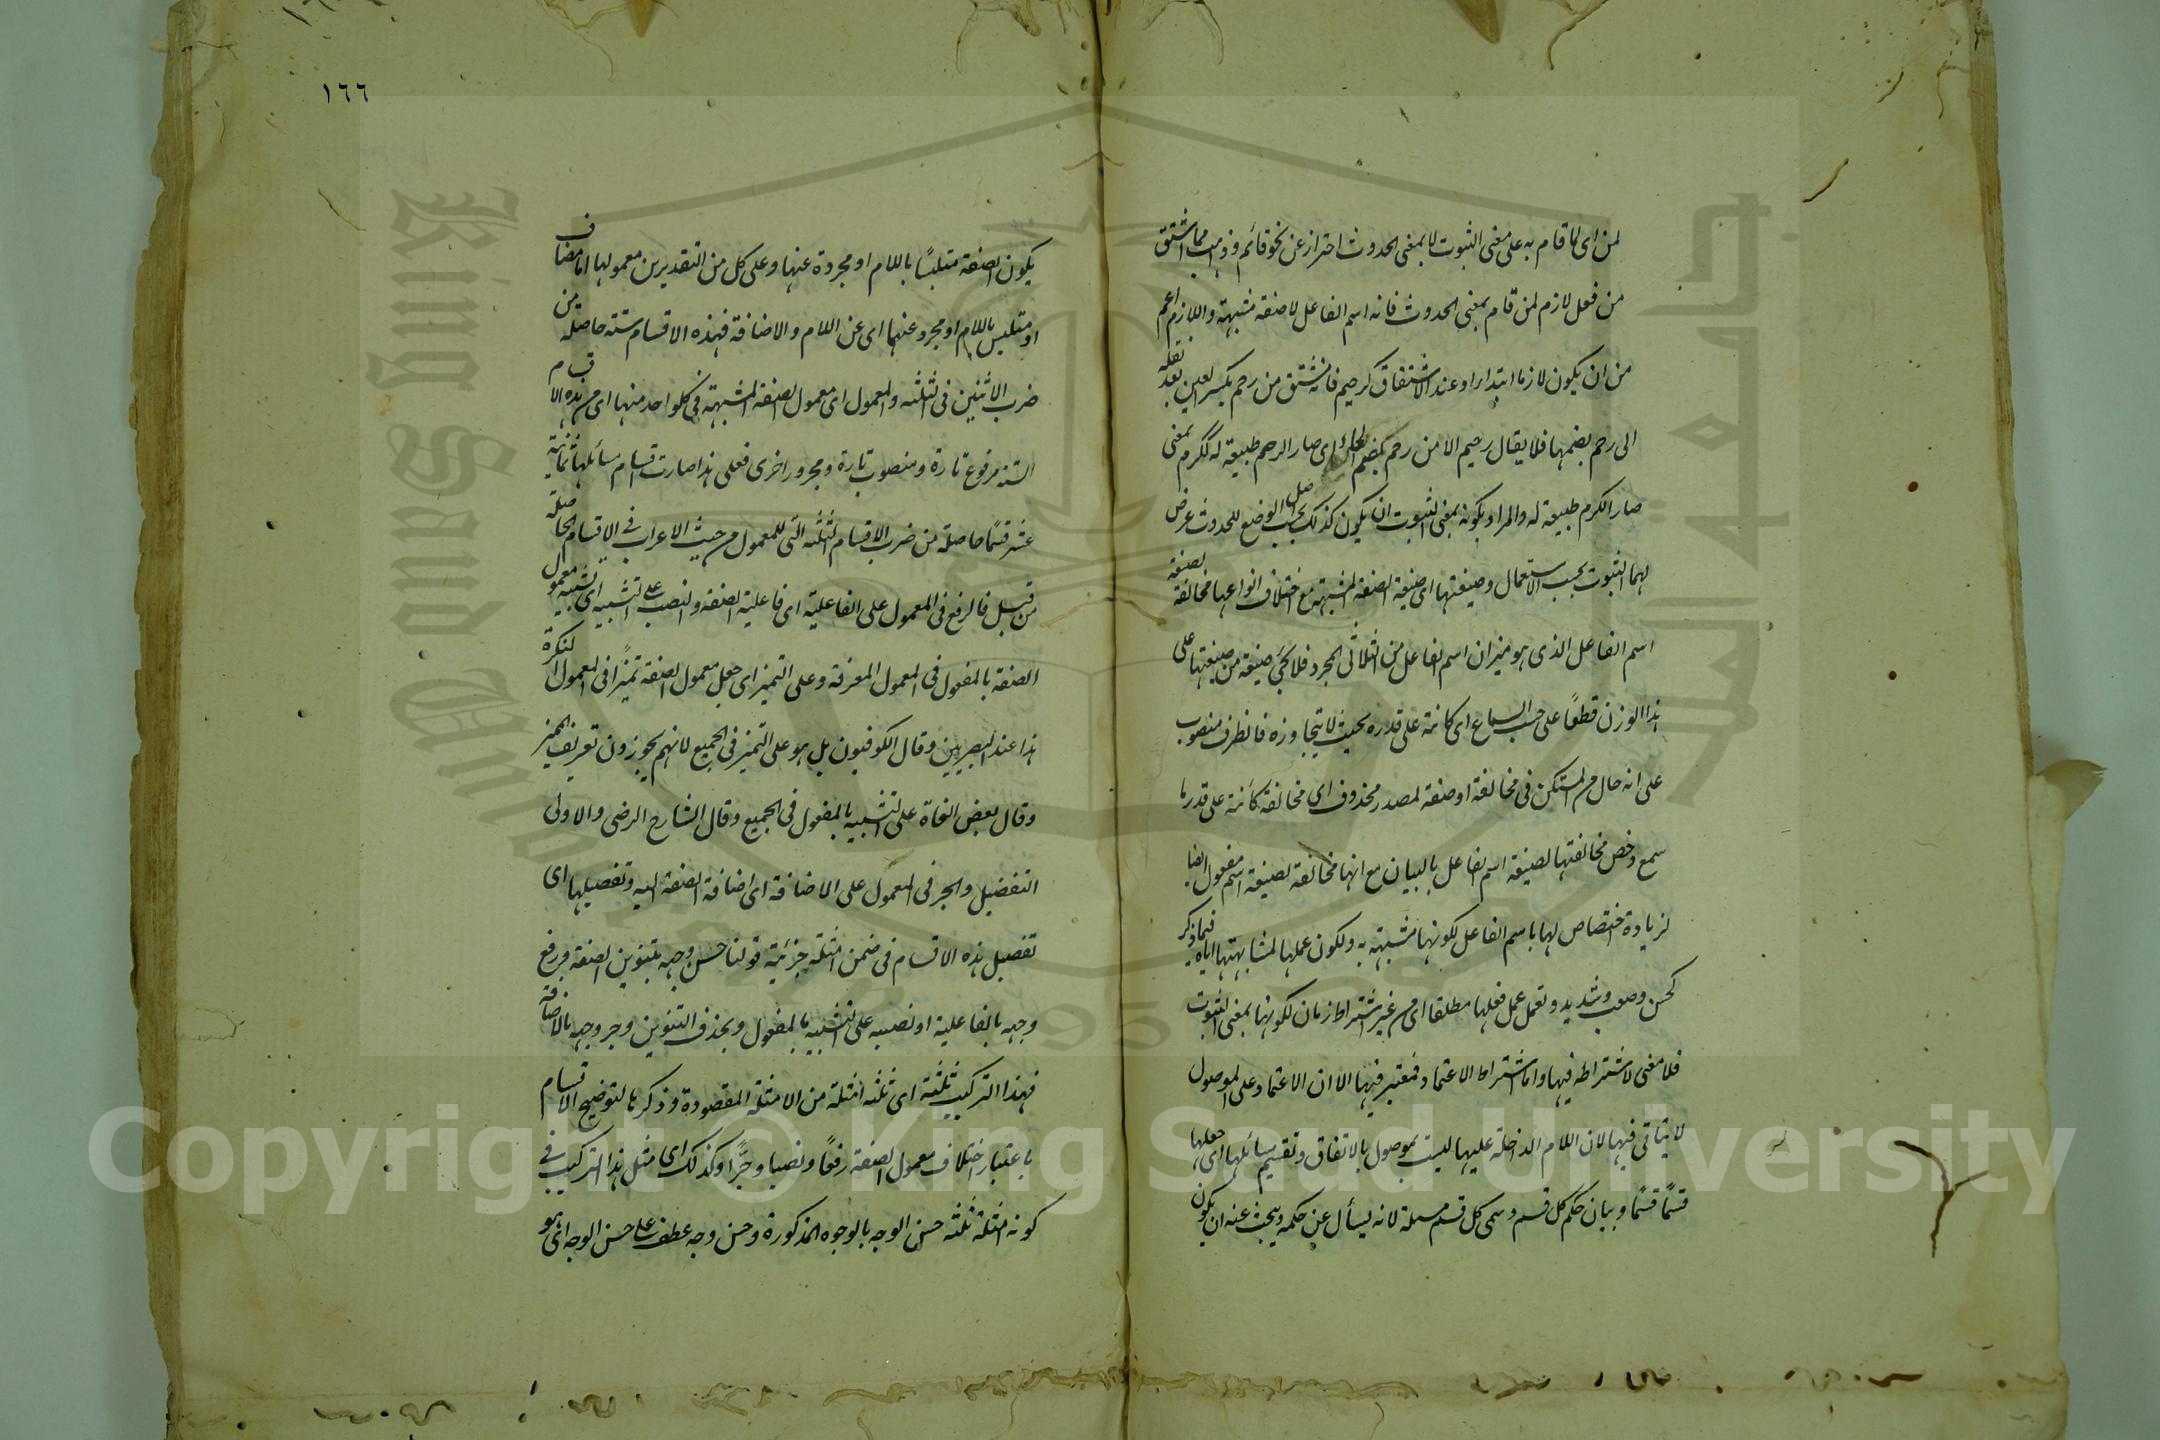 لمن اى لما قام به على معنى الثبوت لا بمعنى الحدوث احتراز عن نحو قائم وذاهب مما اشتق
من فعل لازم لمن قام بمعنى الحدوث فانه اسم الفاعل لا صفة مشبهة واللازم اعم
من ان يكون لازما ابتداء او عند الاشتقاق كرحيم فانه مشتق من رحم بكسر العين بعد نقله
الى رحم بضمها فلا يقال رحيم الا من رحم بضم الحاء اى صار الرحم طبيعة له ككرم بمعنى
صار الكرم طبيعة له والمراد بكونه بمعنى الثبوت ان يكون كذلك بحسب اصل الوضع للحدوث عرض
لهما الثبوت بحسب الاستعمال وصيغتها اى صيغة الصفة المشبهة مع اختلاف انواعها مخالفة لصيغة
اسم الفاعل الذى هو ميزان اسم الفاعل من الثلاثى المجرد فلا تجئ صيغة من صيغتها على
هذا الوزن قطعًا على حسب السماع اى كائنة على قدره بحيث لا يتجاوزه فالظرف منصوب
على انه حال من المستكن فى مخالفة او صفة لمصدر محذوف اى مخالفة كائنة على قدر ما
سمع وخص مخالفتها لصيغة اسم الفاعل بالبيان مع انها مخالفة لصيغة اسم مفعول ايضا
لزيادة اختصاص لها باسم الفاعل لكونها مشبهة به ولكون عملها لمشابهتها اياه فيما ذكر
كحسن وصعب وشديد وتعمل عمل فعلها مطلقا اى من غير اشتراط زمان لكونها بمعنى الثبوت
فلا معنى لاشتراطه فيها واما اشتراط الاعتماد فمعتبر فيها الا ان الاعتماد على الموصول
لا يتاتى فيها لان اللام الداخلة عليها ليست بموصول بالاتفاق وتقسيم مسائلها اى جعلها
قسمًا قسمًا وبيان حكم كل قسم وسمى كل قسم مسئلة لانه يسأل عن حكمه ويبحث عنه ان يكون
١٦٦
يكون الصفة متلبسًا باللام او مجردة عنها وعلى كل من التقديرين معمولها اما مضاف
او متلبس باللام او مجرد عنهما اى عن اللام والاضافة فهذه الاقسام ستة حاصلة من
ضرب الاثنين فى الثلثه والمعمول اى معمول الصفة المشبهة فى كل واحد منها اى من هذه الاقسام
الستة مرفوع تارة ومنصوب تارة ومجرور اخرى فعلى هذا صارت اقسام مسائلها ثمانية
عشر قسمًا حاصلة من ضرب الاقسام الثلثه التى للمعمول من حيث الاعراب فى الاقسام الحاصلة
من قبل فالرفع فى المعمول على الفاعلية اى فاعلية الصفة والنصب على التشبيه اى تشبيه معمول
الصفة بالمفعول فى المعمول المعرفة وعلى التميز اى جعل معمول الصفة تميزًا فى المعمول النكرة
هذا عند البصريين وقال الكوفيون بل هو على التميز فى الجميع لانهم يجوزون تعريف المميز
وقال بعض النحاة على التشبيه بالمفعول فى الجميع وقال الشارح الرضى والاولى
التفضيل والجر فى المعمول على الاضافة اى اضافة الصفة اليه وتفصيلها اى
تفصيل هذه الاقسام فى ضمن امثلة جزئية قولنا حسن وجهه بتنوين الصفة ورفع
وجهه بالفاعلية او نصبه على التشبيه بالمفعول وبحذف التنوين وجر وجهه بالاضافة
فهذا التركيب ثلثة اى ثلثه امثلة من الامثلة المقصودة وذكرها لتوضيح الاقسام
باعتبار اختلاف معمول الصفة رفعًا ونصبا وجرًّا وكذلك اى مثل هذا التركيب فى
كونه امثلة ثلثه حسن الوجه بالوجوه المذكورة وحسن وجه عطف على حسن الوجه اى هو
King Saud University
1957
Copyright © King Saud University